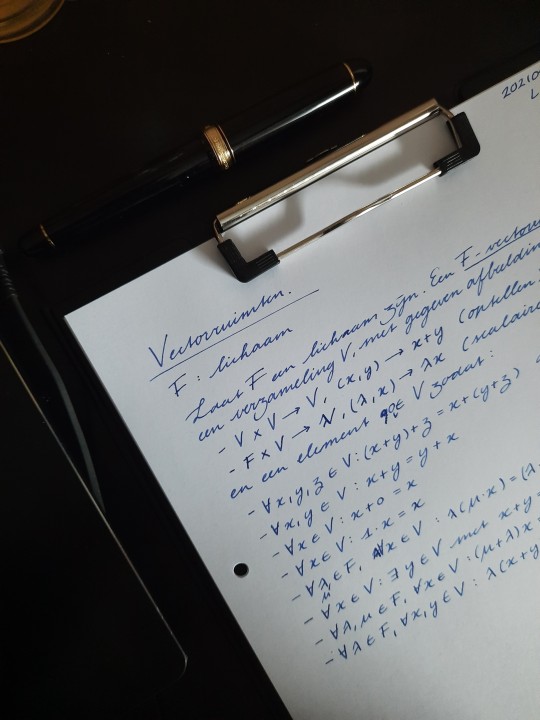 20210
L
Vectorruimten.
F : lichaam
Laat F een lichaam zijn. Een F-vectorru
een verzameling V, met gegeven afbeeldin
- V × V → V, (x,y) → x+y (optellen
- F × V → V, (λ,x) → λx (scalaire
en een element 0 ∈ V zodat:
- ∀x,y,z ∈ V: (x+y)+z = x+(y+z)
- ∀x,y ∈ V : x+y = y+x
- ∀x∈V: x+0 = x
- ∀x∈V: 1·x = x
- ∀λ,μ∈F, ∀x∈V : λ(μ·x) = (λ
- ∀x∈V: ∃y∈V met x+y =
- ∀λ,μ∈F, ∀x∈V: (μ+λ)x =
- ∀λ∈F, ∀x,y∈V: λ(x+y